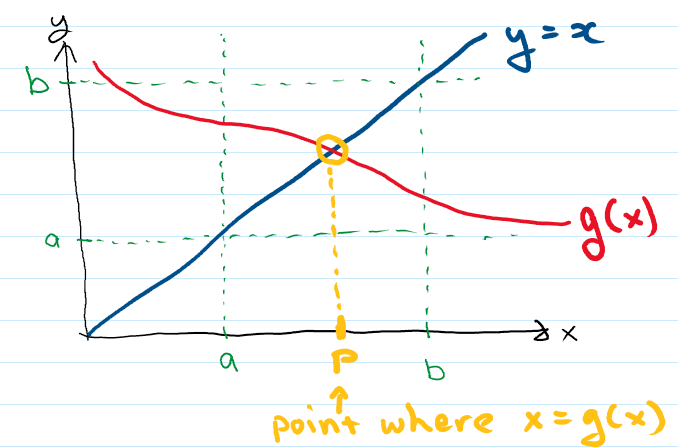 y
y = x
b
g(x)
a
x
a
P
b
point where x = g(x)